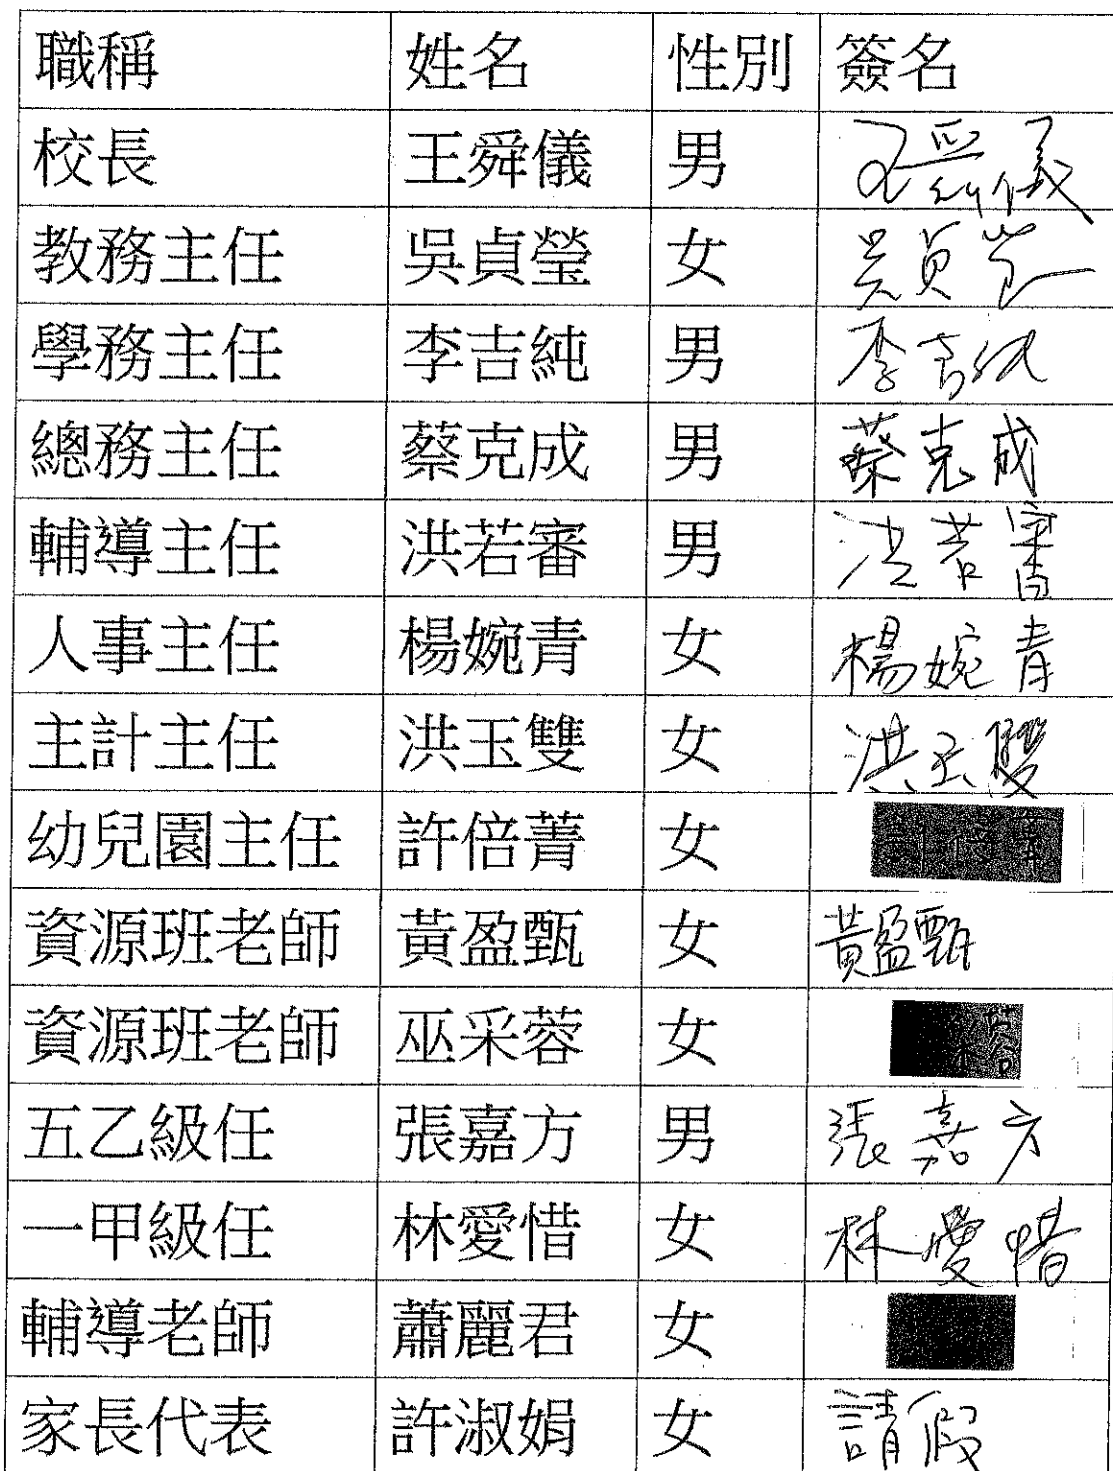 職稱 姓名 性別 簽名
校長 王舜儀 男 王舜儀
教務主任 吳貞瑩 女 吳貞瑩
學務主任 李吉純 男 李吉純
總務主任 蔡克成 男 蔡克成
輔導主任 洪若審 男 洪若審
人事主任 楊婉青 女 楊婉青
主計主任 洪玉雙 女 洪玉雙
幼兒園主任 許倍菁 女
資源班老師 黃盈甄 女 黃盈甄
資源班老師 巫采蓉 女
五乙級任 張嘉方 男 張嘉方
一甲級任 林愛惜 女 林愛惜
輔導老師 蕭麗君 女
家長代表 許淑娟 女 請假